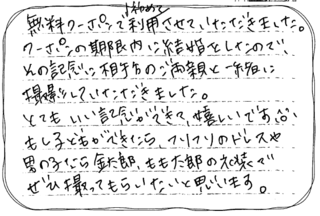 初めて
無料クーポンで利用させていただきました。
クーポンの期限内に結婚をしたので、
その記念に相手のご両親と一緒に
撮影していただきました。
とてもいい記念ができて、嬉しいですが、
もし子どもができたら、フリフリのドレスや
男の子なら金太郎、ももた郎の衣装で
ぜひ撮ってもらいたいと思います。